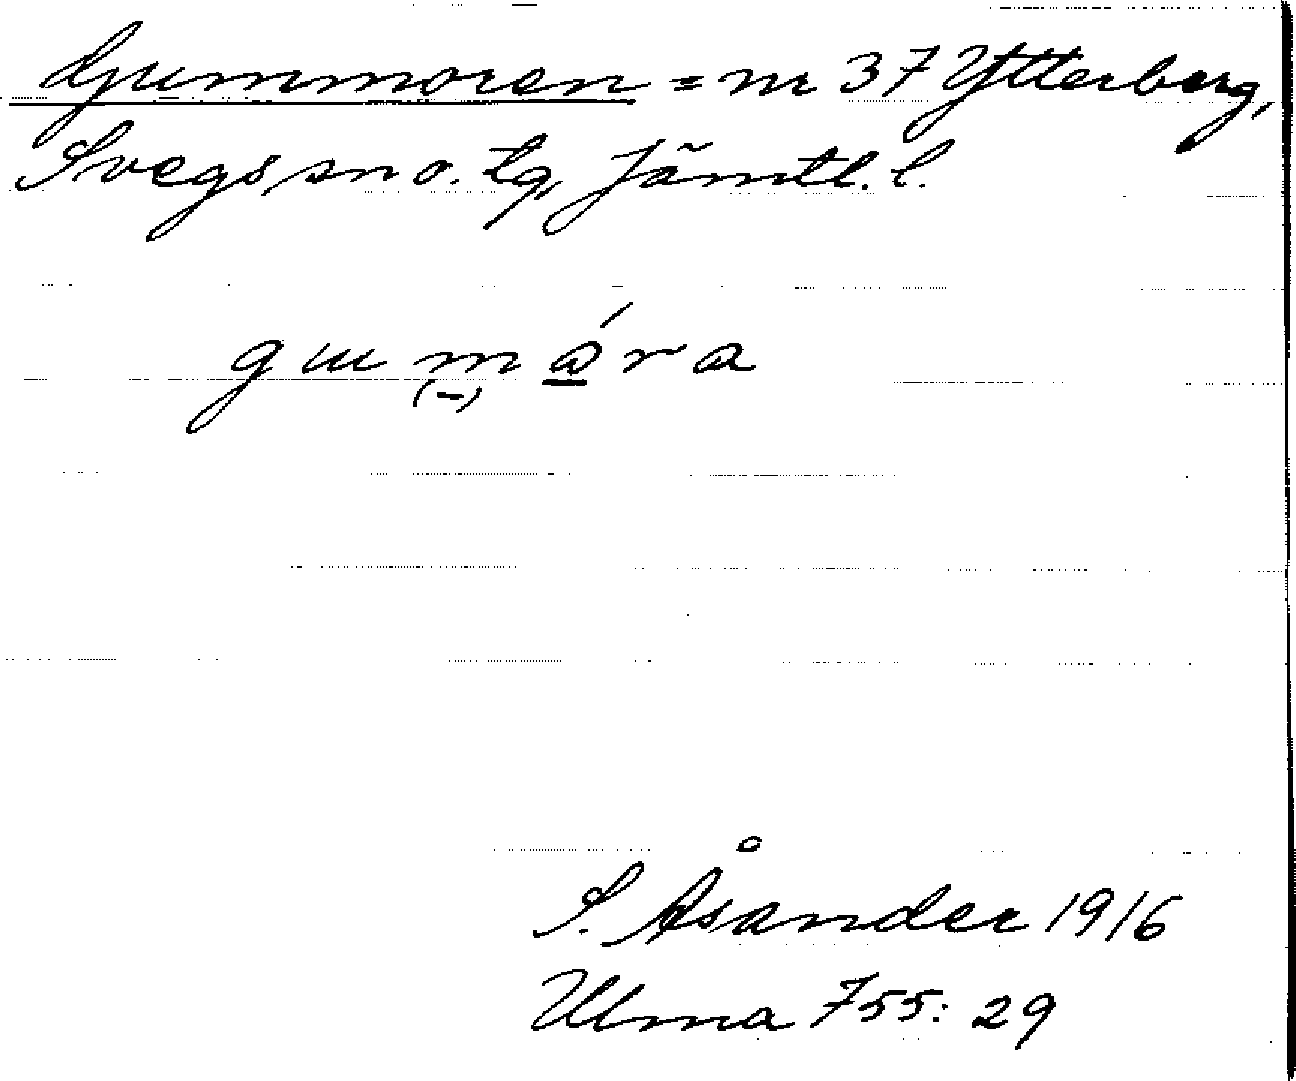 Gummoren = nr 37 Ytterberg,
Svegs sn o. tg, Jämtl. l.
gummǻra
(-)
S. Åsander 1916
Ulma 755: 29